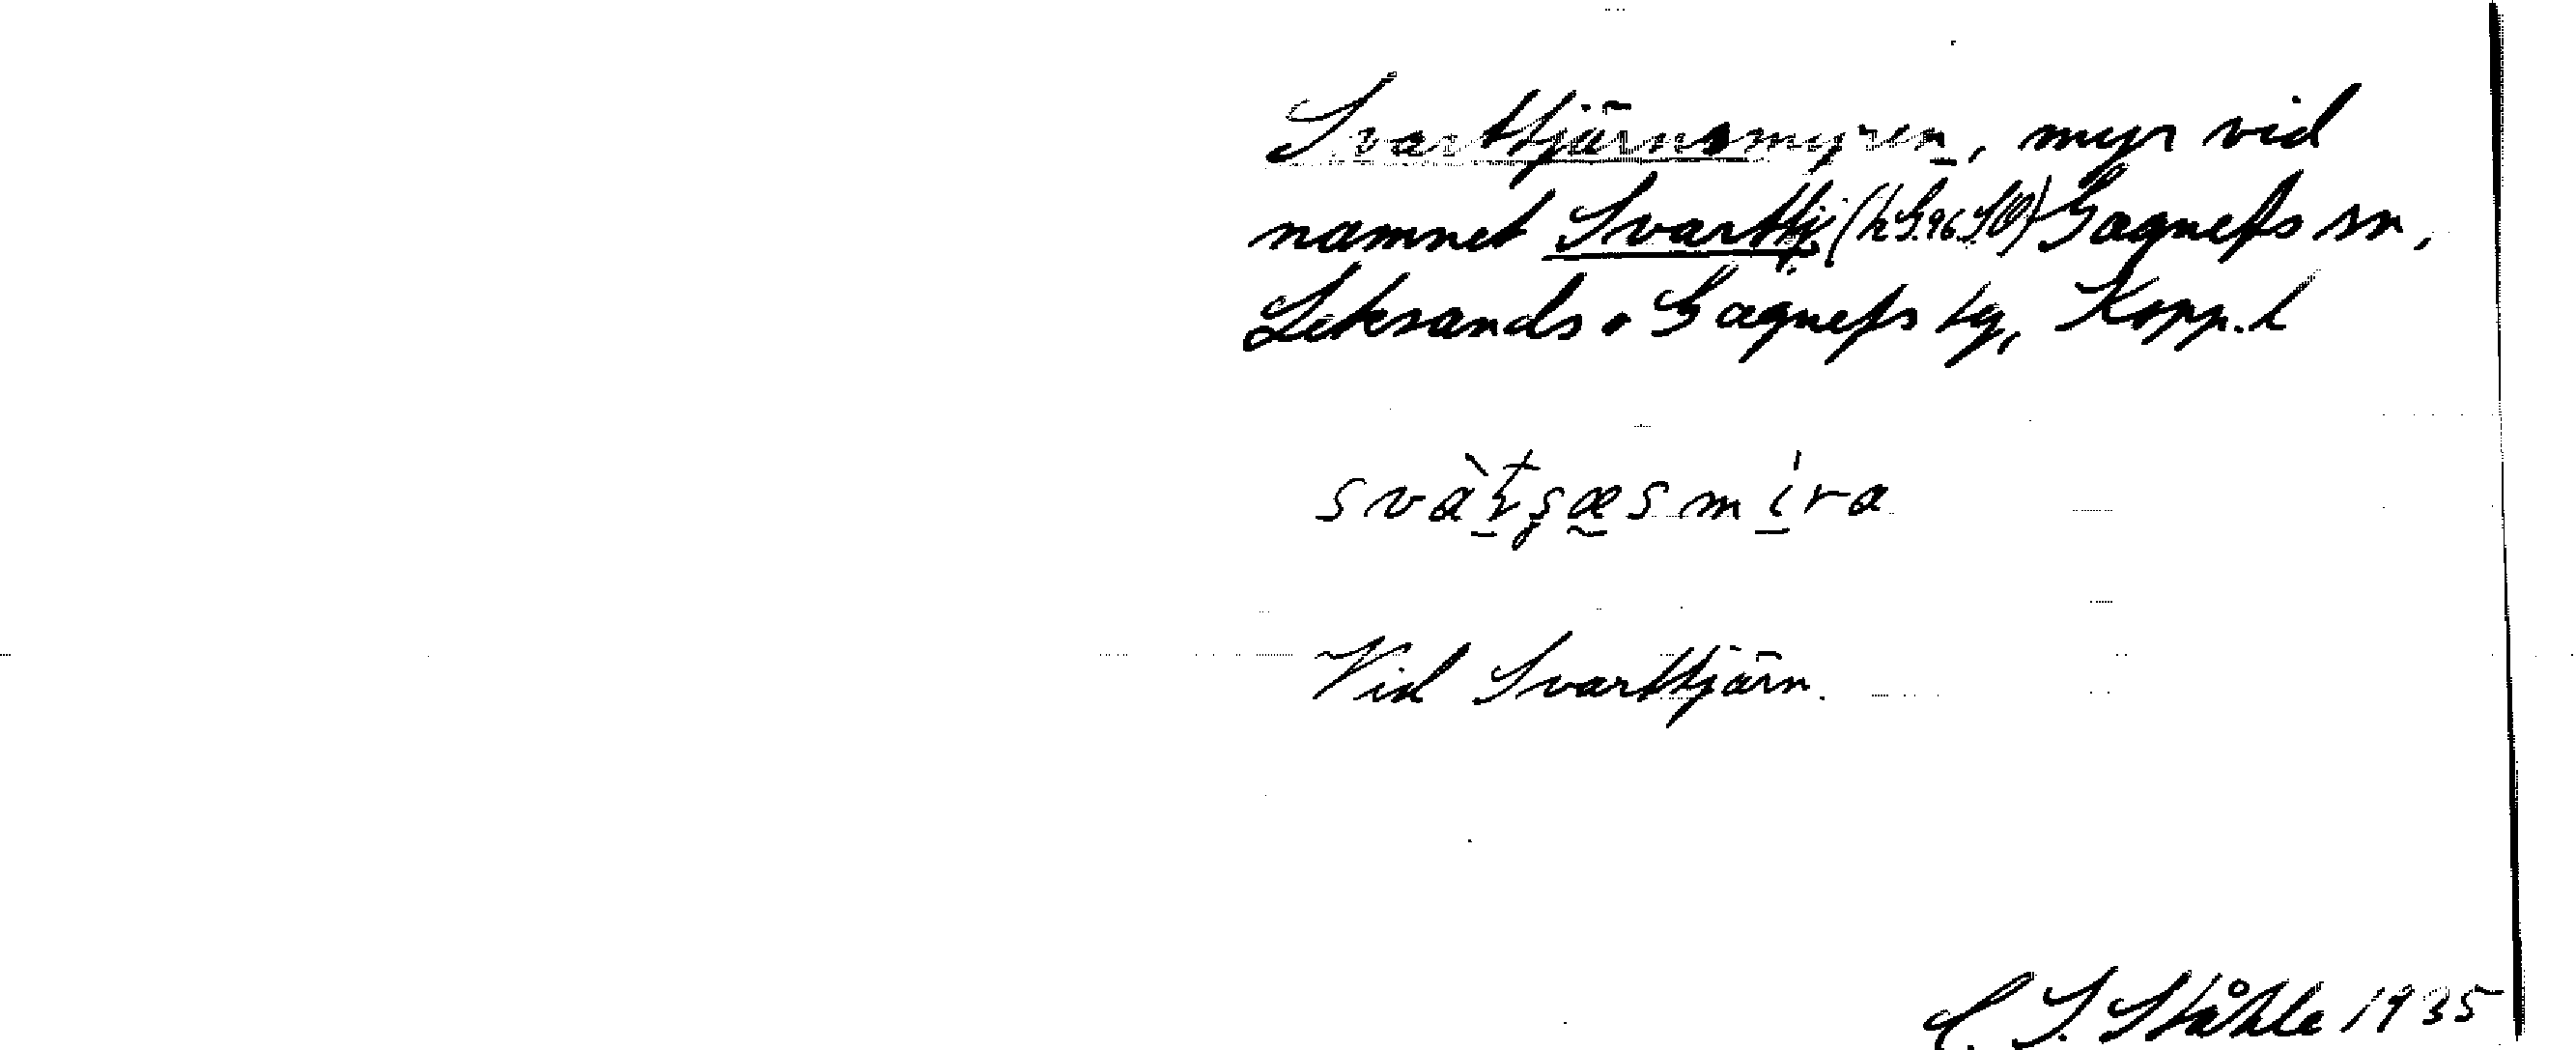 Svarttjärnsmyren, myr vid
namnet Svarttj. (h S.96 SO) Gagnefs sn,
Leksands o Gagnefs tg, Kopp. l
Vid Svarttjärn.
C. I. Ståhle 1935